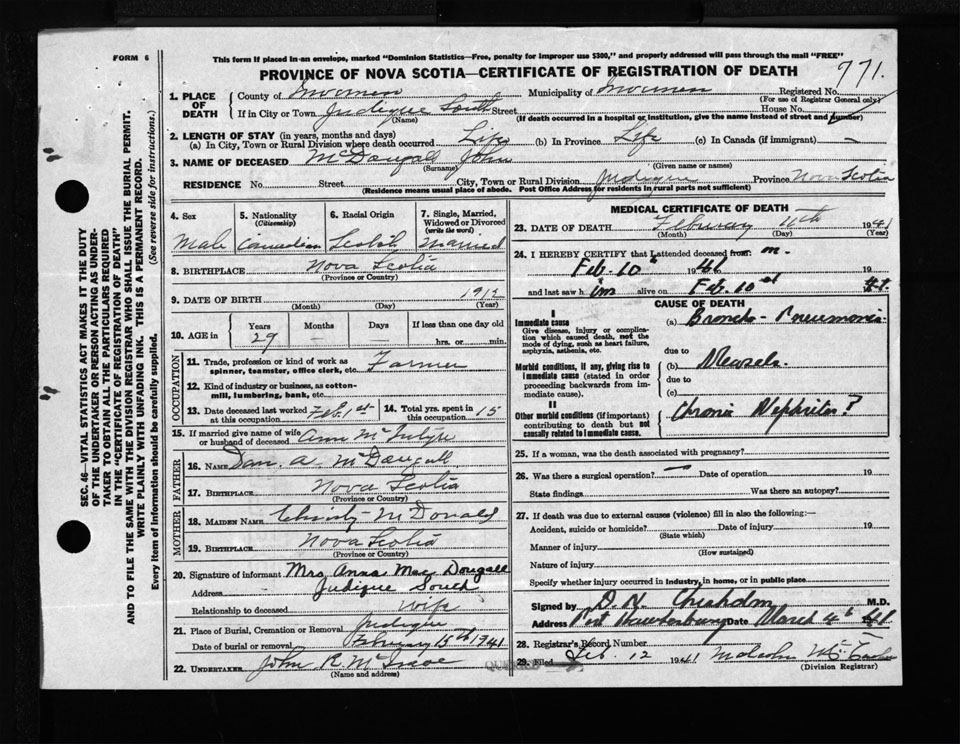 FORM 6
This form if placed in an envelope, marked "Dominion Statistics—Free, penalty for improper use $300," and properly addressed will pass through the mail "FREE"
PROVINCE OF NOVA SCOTIA—CERTIFICATE OF REGISTRATION OF DEATH
771.
1. PLACE OF DEATH County of Inverness Municipality of Inverness Registered No.
(For use of Registrar General only)
If in City or Town Judique South Street House No.
(Name) (If death occurred in a hospital or institution, give the name instead of street and number)
2. LENGTH OF STAY (in years, months and days)
(a) In City, Town or Rural Division where death occurred Life (b) In Province Life (c) In Canada (if immigrant) —
3. NAME OF DECEASED McDougall John
(Surname) (Given name or names)
RESIDENCE No. Street City, Town or Rural Division Judique Province Nova Scotia
(Residence means usual place of abode. Post Office Address for residents in rural parts not sufficient)
4. Sex 5. Nationality (Citizenship) 6. Racial Origin 7. Single, Married, Widowed or Divorced (write the word)
Male Canadian Scotch Married
8. BIRTHPLACE Nova Scotia
(Province or Country)
9. DATE OF BIRTH 1912
(Month) (Day) (Year)
10. AGE in Years Months Days If less than one day old
29 — — hrs. or min.
OCCUPATION
11. Trade, profession or kind of work as spinner, teamster, office clerk, etc. Farmer
12. Kind of industry or business, as cotton-mill, lumbering, bank, etc.
13. Date deceased last worked at this occupation Feb. 1st 14. Total yrs. spent in this occupation 15
15. If married give name of wife or husband of deceased Ann McIntyre
FATHER
16. NAME Dan. A. McDougall
17. BIRTHPLACE Nova Scotia
(Province or Country)
MOTHER
18. MAIDEN NAME Christy McDonald
19. BIRTHPLACE Nova Scotia
(Province or Country)
20. Signature of informant Mrs Anna Mac Dougall
Address Judique South
Relationship to deceased wife
21. Place of Burial, Cremation or Removal Judique
Date of burial or removal February 13th 1941
22. UNDERTAKER John R.
(Name and address)
MEDICAL CERTIFICATE OF DEATH
23. DATE OF DEATH February 11th 1941
(Month) (Day) (Year)
24. I HEREBY CERTIFY that I attended deceased from: m.
Feb. 10 1941 19
and last saw him alive on Feb. 10 41.
CAUSE OF DEATH
I
Immediate cause (a) Broncho-Pneumonia
Give disease, injury or complication which caused death, not the mode of dying, such as heart failure, asphyxia, asthenia, etc.
due to
Morbid conditions, if any, giving rise to immediate cause (stated in order proceeding backwards from immediate cause). (b) Measels.
due to
(c)
II
Other morbid conditions (if important) contributing to death but not causally related to immediate cause. Chronic Nephritis?
25. If a woman, was the death associated with pregnancy?
26. Was there a surgical operation? — Date of operation 19
State findings Was there an autopsy?
27. If death was due to external causes (violence) fill in also the following:—
Accident, suicide or homicide? Date of injury 19
(State which)
Manner of injury
(How sustained)
Nature of injury
Specify whether injury occurred in industry, in home, or in public place
Signed by D. N. Chisholm M.D.
Address Port Hawkesbury Date March 4th 41.
28. Registrar's Record Number
29. Filed Feb. 12 1941 Malcolm
(Division Registrar)
SEC. 46—VITAL STATISTICS ACT MAKES IT THE DUTY
OF THE UNDERTAKER OR PERSON ACTING AS UNDER-
TAKER TO OBTAIN ALL THE PARTICULARS REQUIRED
IN THE "CERTIFICATE OF REGISTRATION OF DEATH"
AND TO FILE THE SAME WITH THE DIVISION REGISTRAR WHO SHALL ISSUE THE BURIAL PERMIT.
WRITE PLAINLY WITH UNFADING INK. THIS IS A PERMANENT RECORD.
Every item of information should be carefully supplied. (See reverse side for instructions.)